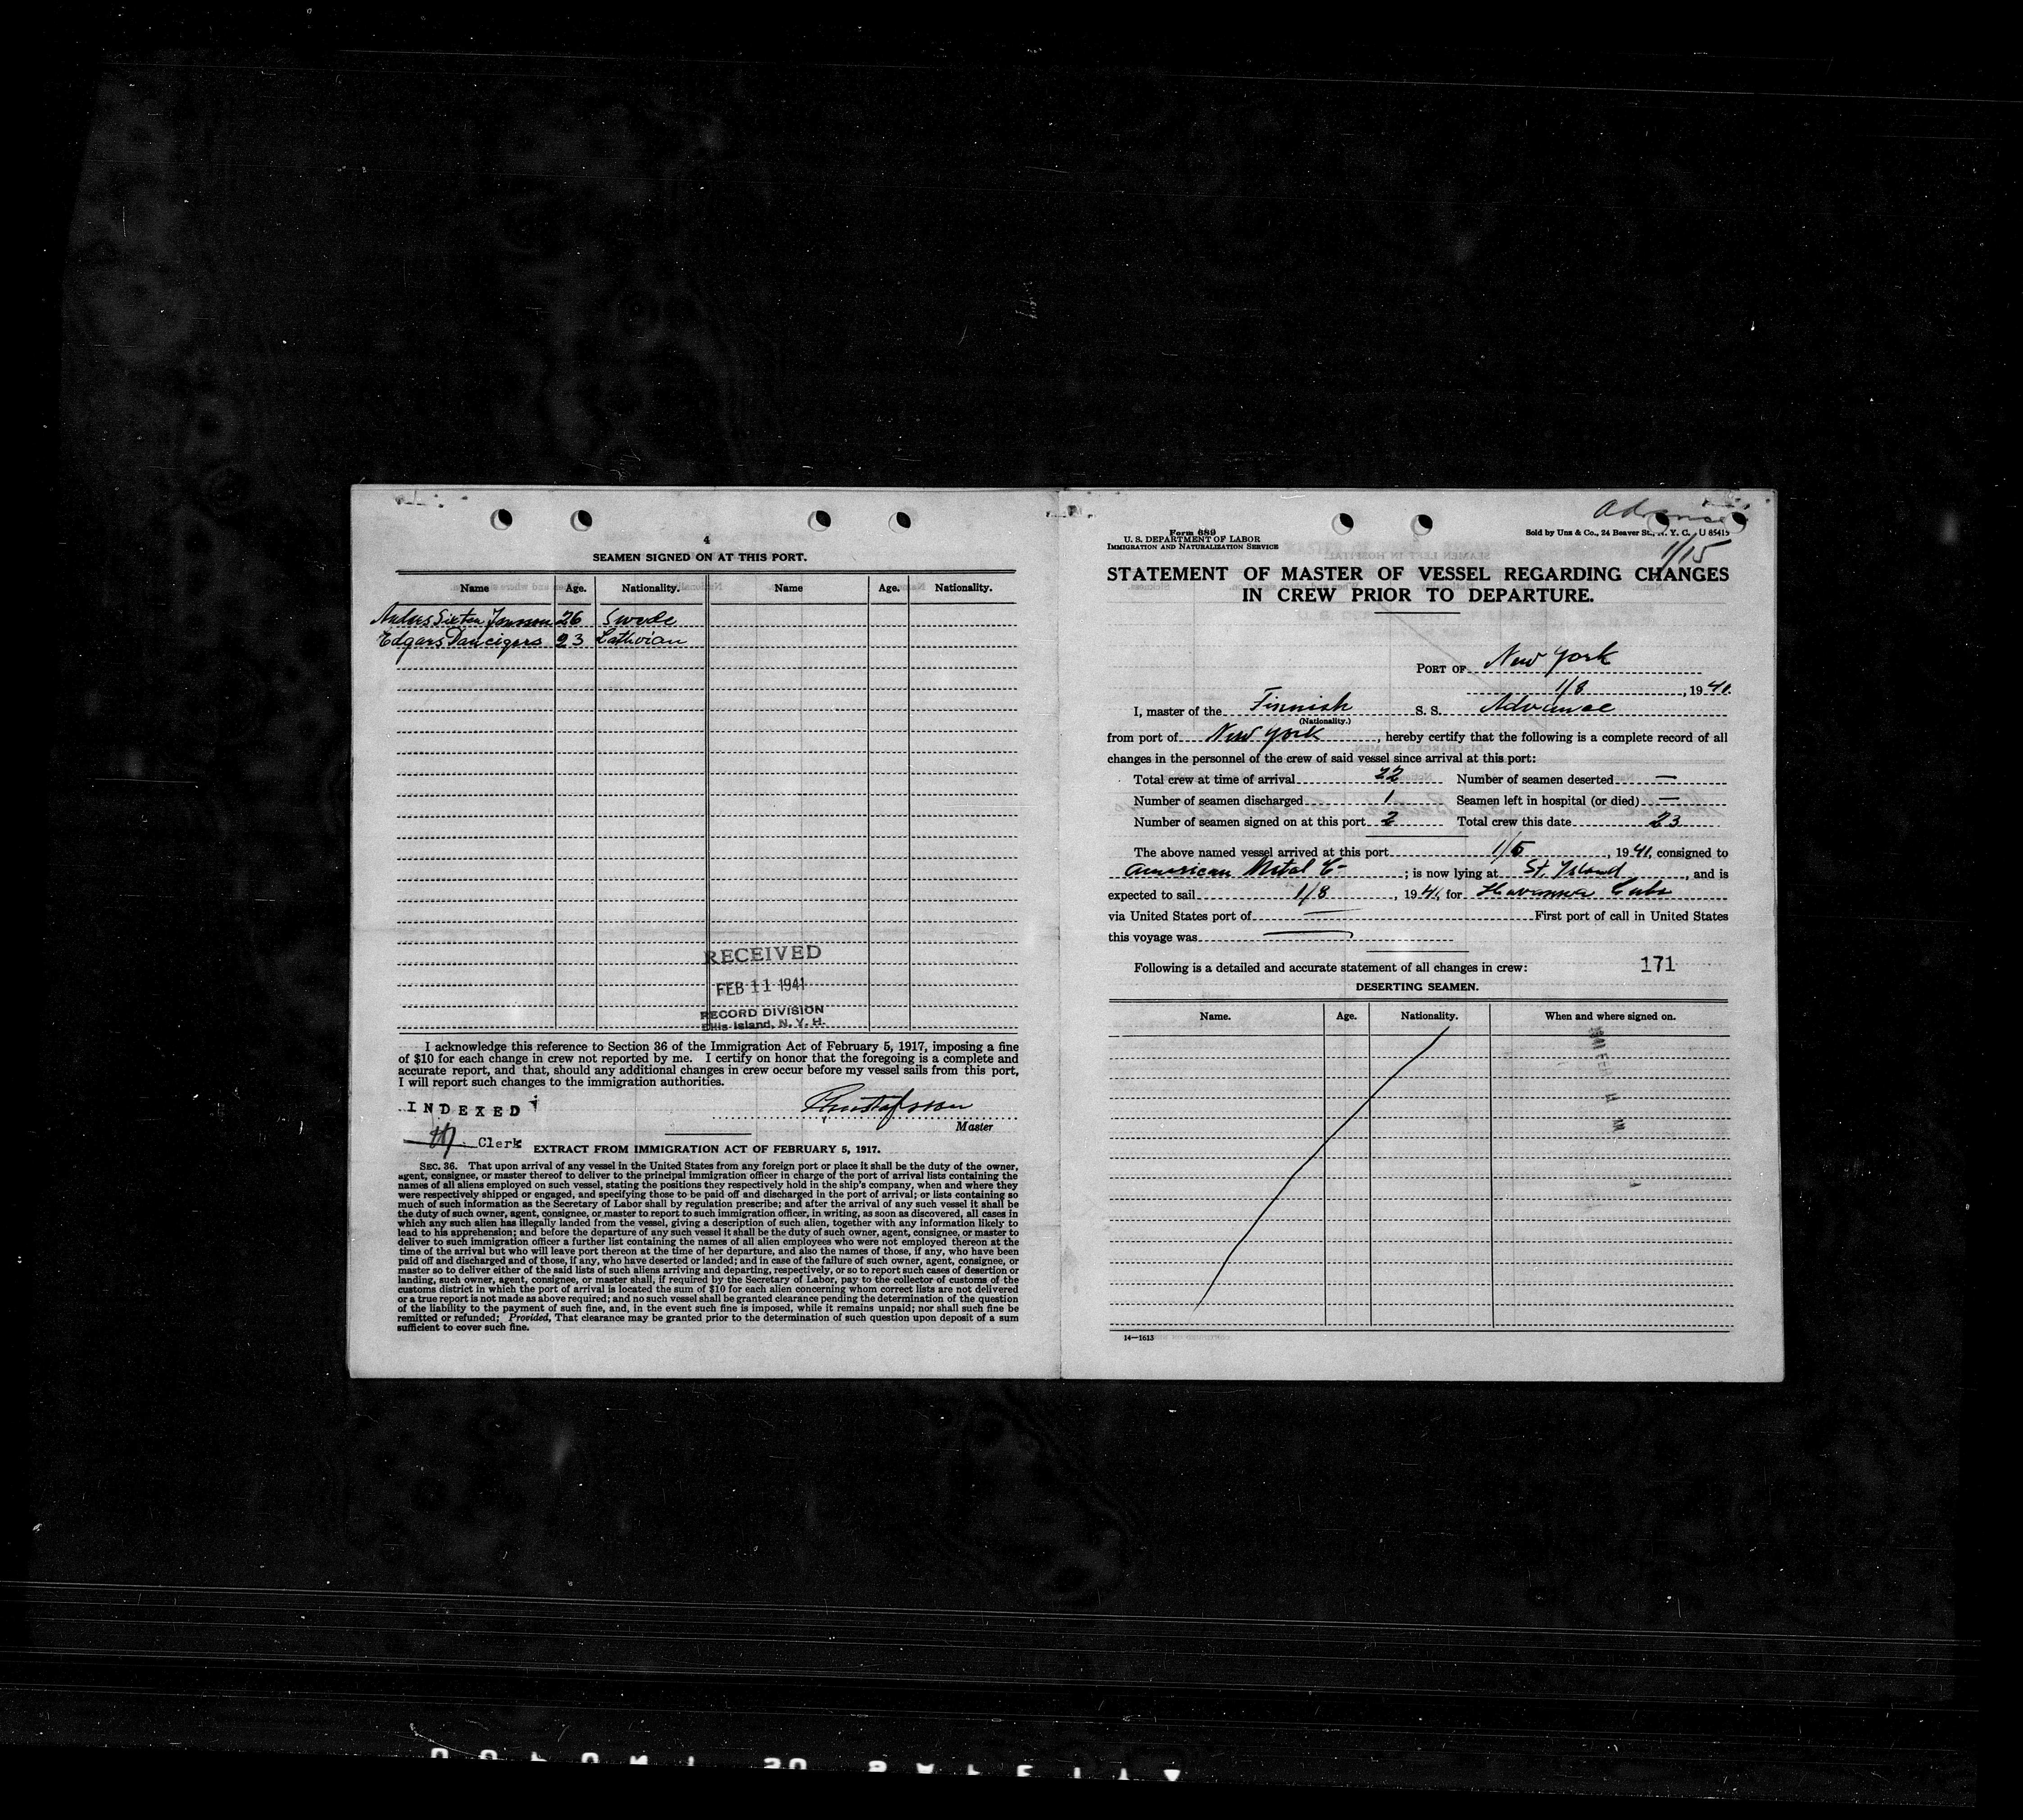 4
SEAMEN SIGNED ON AT THIS PORT.
Name Age. Nationality. Name Age. Nationality.
26 Swede
Edgars Dancigers 23 Lathvian
RECEIVED
FEB 11 1941
RECORD DIVISION
Ellis Island, N. Y. H.
I acknowledge this reference to Section 36 of the Immigration Act of February 5, 1917, imposing a fine
of $10 for each change in crew not reported by me. I certify on honor that the foregoing is a complete and
accurate report, and that, should any additional changes in crew occur before my vessel sails from this port,
I will report such changes to the immigration authorities.
INDEXED
Gustafsson
Master
Clerk
EXTRACT FROM IMMIGRATION ACT OF FEBRUARY 5, 1917.
SEC. 36. That upon arrival of any vessel in the United States from any foreign port or place it shall be the duty of the owner,
agent, consignee, or master thereof to deliver to the principal immigration officer in charge of the port of arrival lists containing the
names of all aliens employed on such vessel, stating the positions they respectively hold in the ship's company, when and where they
were respectively shipped or engaged, and specifying those to be paid off and discharged in the port of arrival; or lists containing so
much of such information as the Secretary of Labor shall by regulation prescribe; and after the arrival of any such vessel it shall be
the duty of such owner, agent, consignee, or master to report to such immigration officer, in writing, as soon as discovered, all cases in
which any such alien has illegally landed from the vessel, giving a description of such alien, together with any information likely to
lead to his apprehension; and before the departure of any such vessel it shall be the duty of such owner, agent, consignee, or master to
deliver to such immigration officer a further list containing the names of all alien employees who were not employed thereon at the
time of the arrival but who will leave port thereon at the time of her departure, and also the names of those, if any, who have been
paid off and discharged and of those, if any, who have deserted or landed; and in case of the failure of such owner, agent, consignee, or
master so to deliver either of the said lists of such aliens arriving and departing, respectively, or so to report such cases of desertion or
landing, such owner, agent, consignee, or master shall, if required by the Secretary of Labor, pay to the collector of customs of the
customs district in which the port of arrival is located the sum of $10 for each alien concerning whom correct lists are not delivered
or a true report is not made as above required; and no such vessel shall be granted clearance pending the determination of the question
of the liability to the payment of such fine, and, in the event such fine is imposed, while it remains unpaid; nor shall such fine be
remitted or refunded; Provided, That clearance may be granted prior to the determination of such question upon deposit of a sum
sufficient to cover such fine.
Advance
Form 689
U. S. DEPARTMENT OF LABOR
IMMIGRATION AND NATURALIZATION SERVICE
Sold by Unz & Co., 24 Beaver St., N. Y. C. U 85415
1/15
STATEMENT OF MASTER OF VESSEL REGARDING CHANGES
IN CREW PRIOR TO DEPARTURE.
PORT OF New York
1/8, 1941.
I, master of the Finnish S. S. Advance
(Nationality.)
from port of New York, hereby certify that the following is a complete record of all
changes in the personnel of the crew of said vessel since arrival at this port:
Total crew at time of arrival 22 Number of seamen deserted —
Number of seamen discharged 1 Seamen left in hospital (or died) —
Number of seamen signed on at this port 2 Total crew this date 23
The above named vessel arrived at this port 1/5, 1941, consigned to
American Metal Co ; is now lying at St. Island, and is
expected to sail 1/8, 1941, for Havanna Cuba
via United States port of — First port of call in United States
this voyage was —
Following is a detailed and accurate statement of all changes in crew: 171
DESERTING SEAMEN.
Name. Age. Nationality. When and where signed on.
14—1613